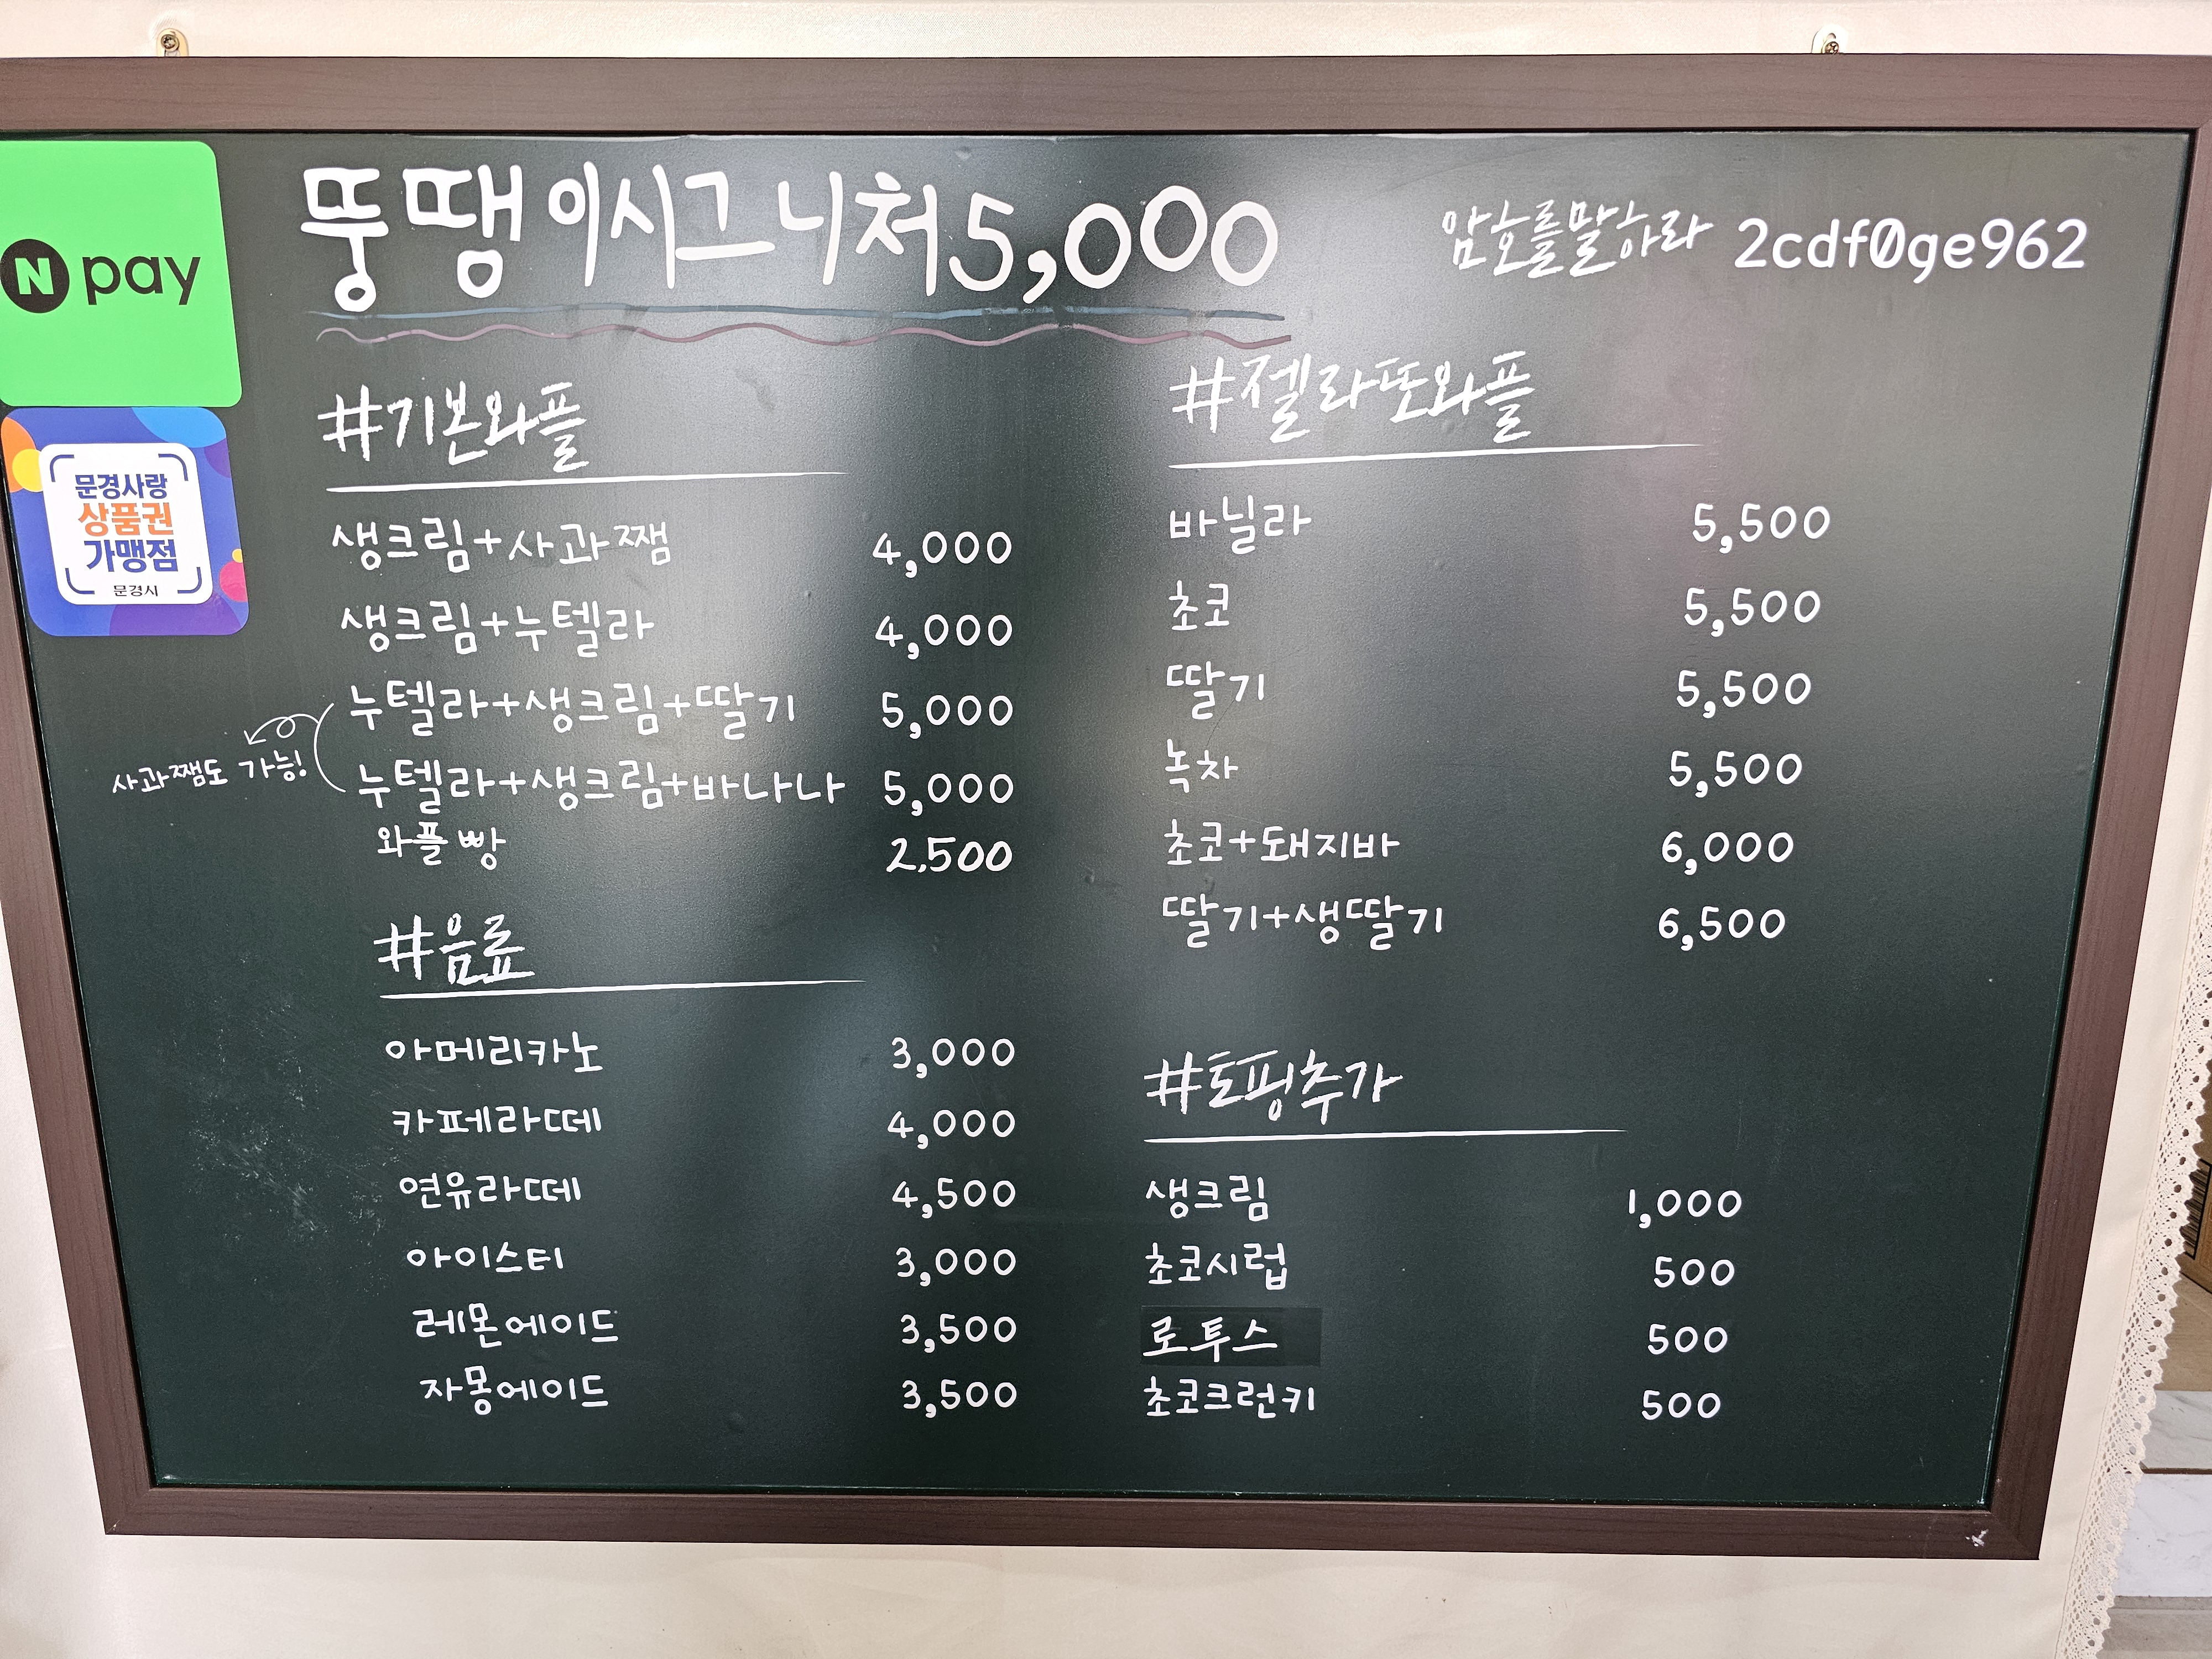 뚱땡이시그니처 5,000
암호를말하라 2cdf0ge962
N pay
문경사랑
상품권
가맹점
문경시
#기본와플
생크림+사과쨈 4,000
생크림+누텔라 4,000
누텔라+생크림+딸기 5,000
누텔라+생크림+바나나 5,000
사과쨈도 가능!
와플빵 2,500
#음료
아메리카노 3,000
카페라떼 4,000
연유라떼 4,500
아이스티 3,000
레몬에이드 3,500
자몽에이드 3,500
#젤라또와플
바닐라 5,500
초코 5,500
딸기 5,500
녹차 5,500
초코+돼지바 6,000
딸기+생딸기 6,500
#토핑추가
생크림 1,000
초코시럽 500
로투스 500
초코크런키 500